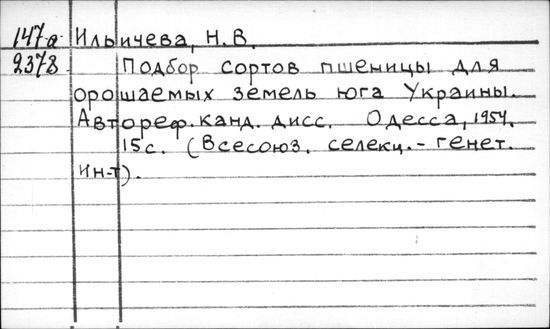 147а Ильичева, Н.В.
2378 Подбор сортов пшеницы для
орошаемых земель юга Украины.
Автореф. канд. дисс. Одесса, 1954.
15с. (Всесоюз. селекц.- генет.
ин-т).